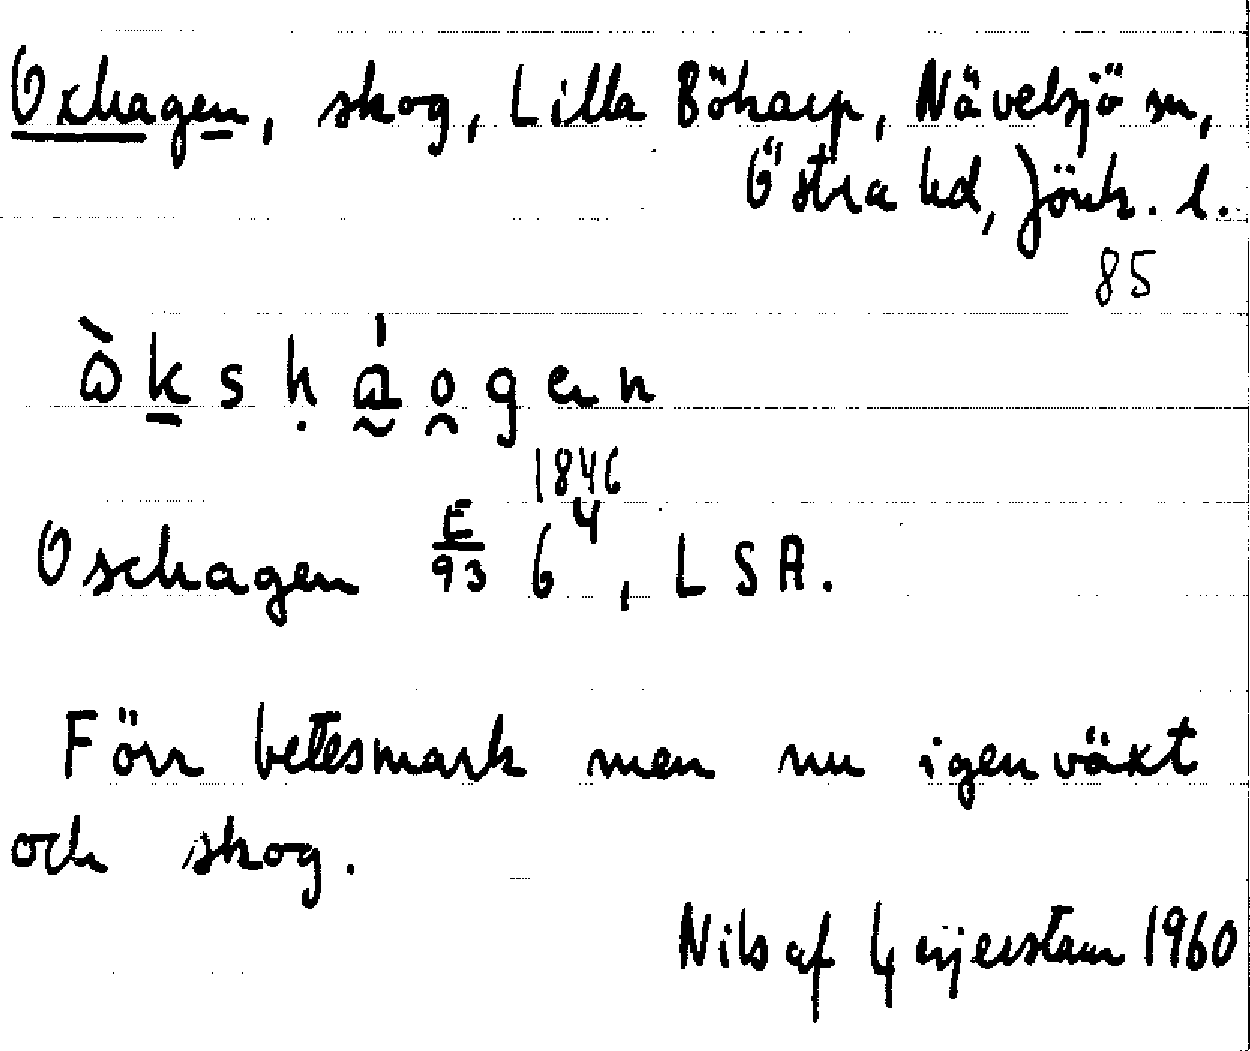 Oxhagen, skog, Lilla Böharp, Nävelsjö sn,
Östra hd, Jönk. l.
85
ò̀k̠sḥá̰o̯gen
1846
Oschagen E/93 6⁴, LSA.
Förr betesmark men nu igenväxt
och skog.
Nils af Geijerstam 1960